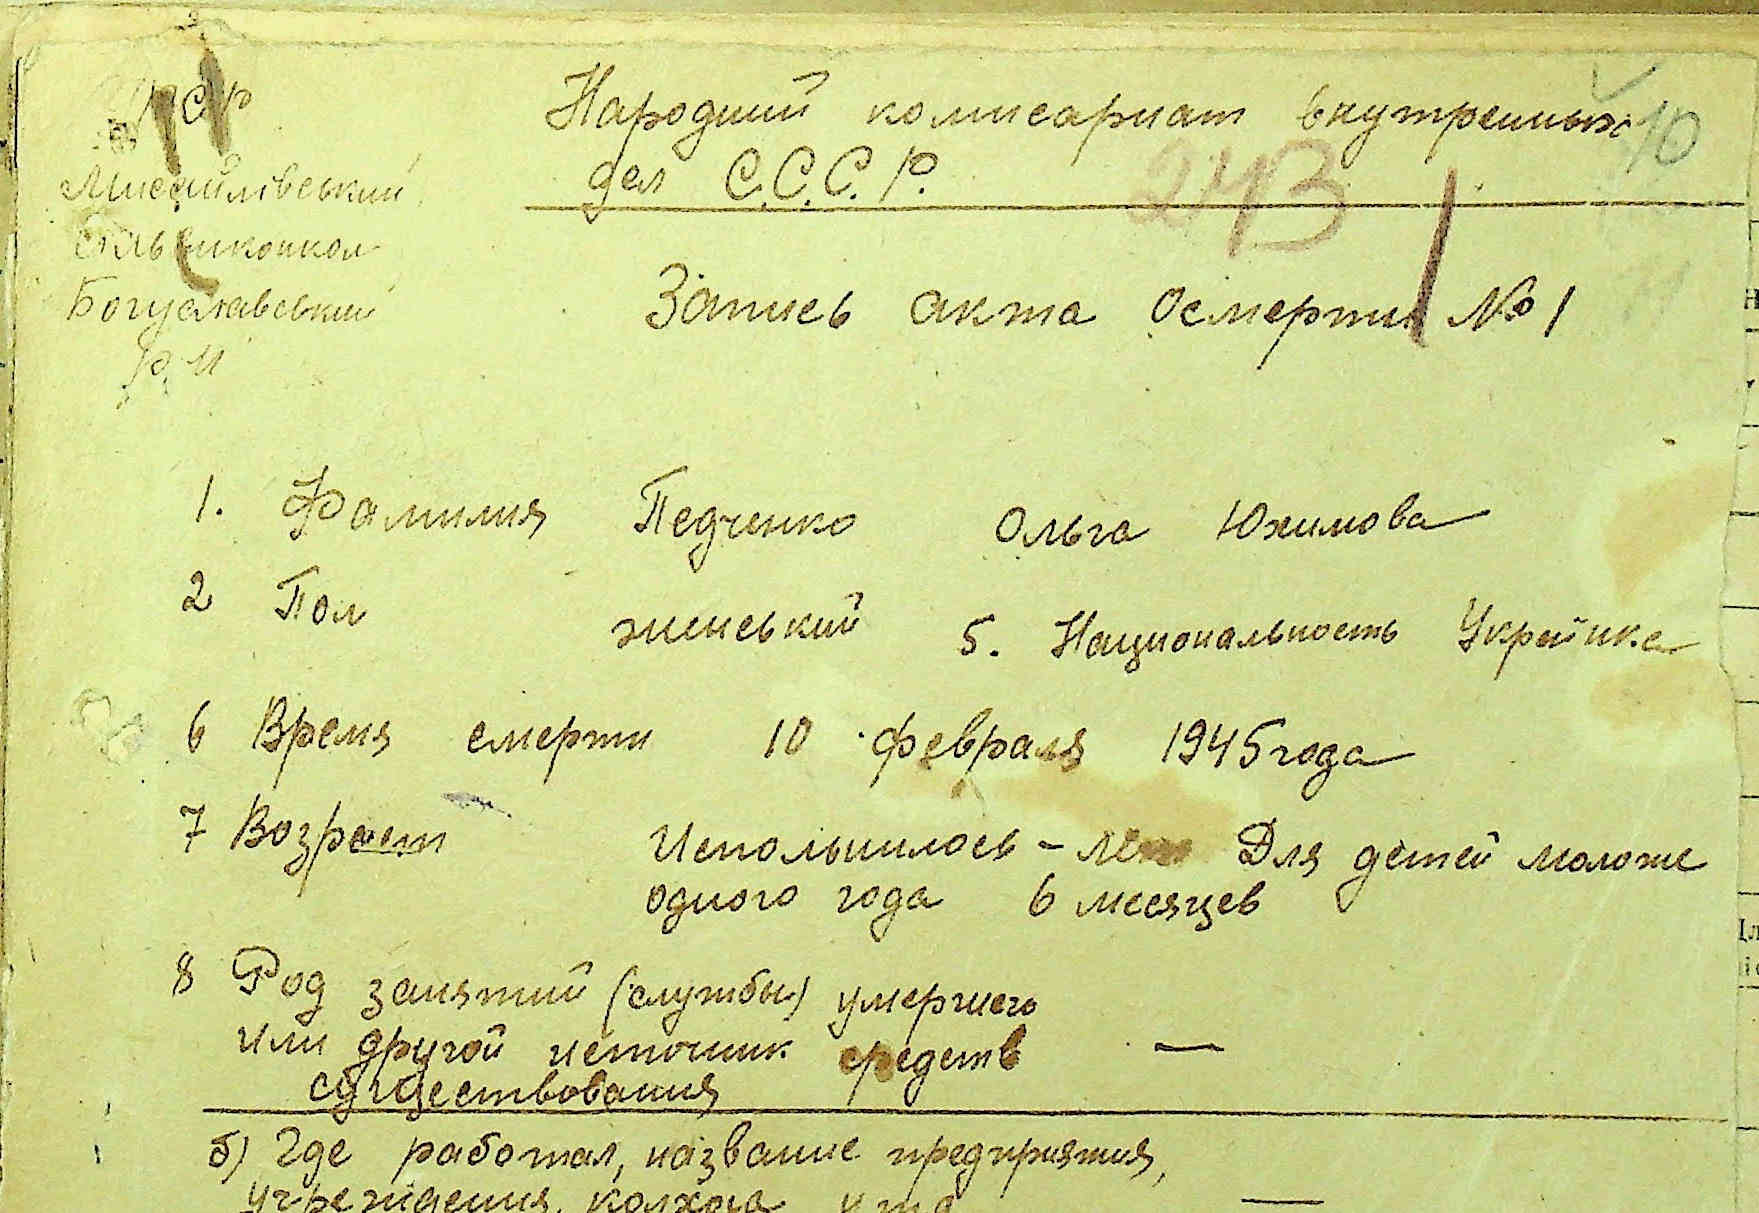 УССР
Мисайлівський
сільвиконком
Богуславський
р-н
Народний комисариат внутренных
дел С.С.С.Р.
10
243
Запись акта осмерти № 1
1. Фамилия Педченко Ольга Юхимова
2 Пол женський 5. Национальность Українка
6 Время смерти 10 февраля 1945 года
7 Возраст Испольнилось - лет Для детей моложе
одного года 6 месяцев
8 Род занятий (службы) умершего
или другой источник средств —
существования
б) Где работал, название предприятия,
учреждения, колхоза и т д —